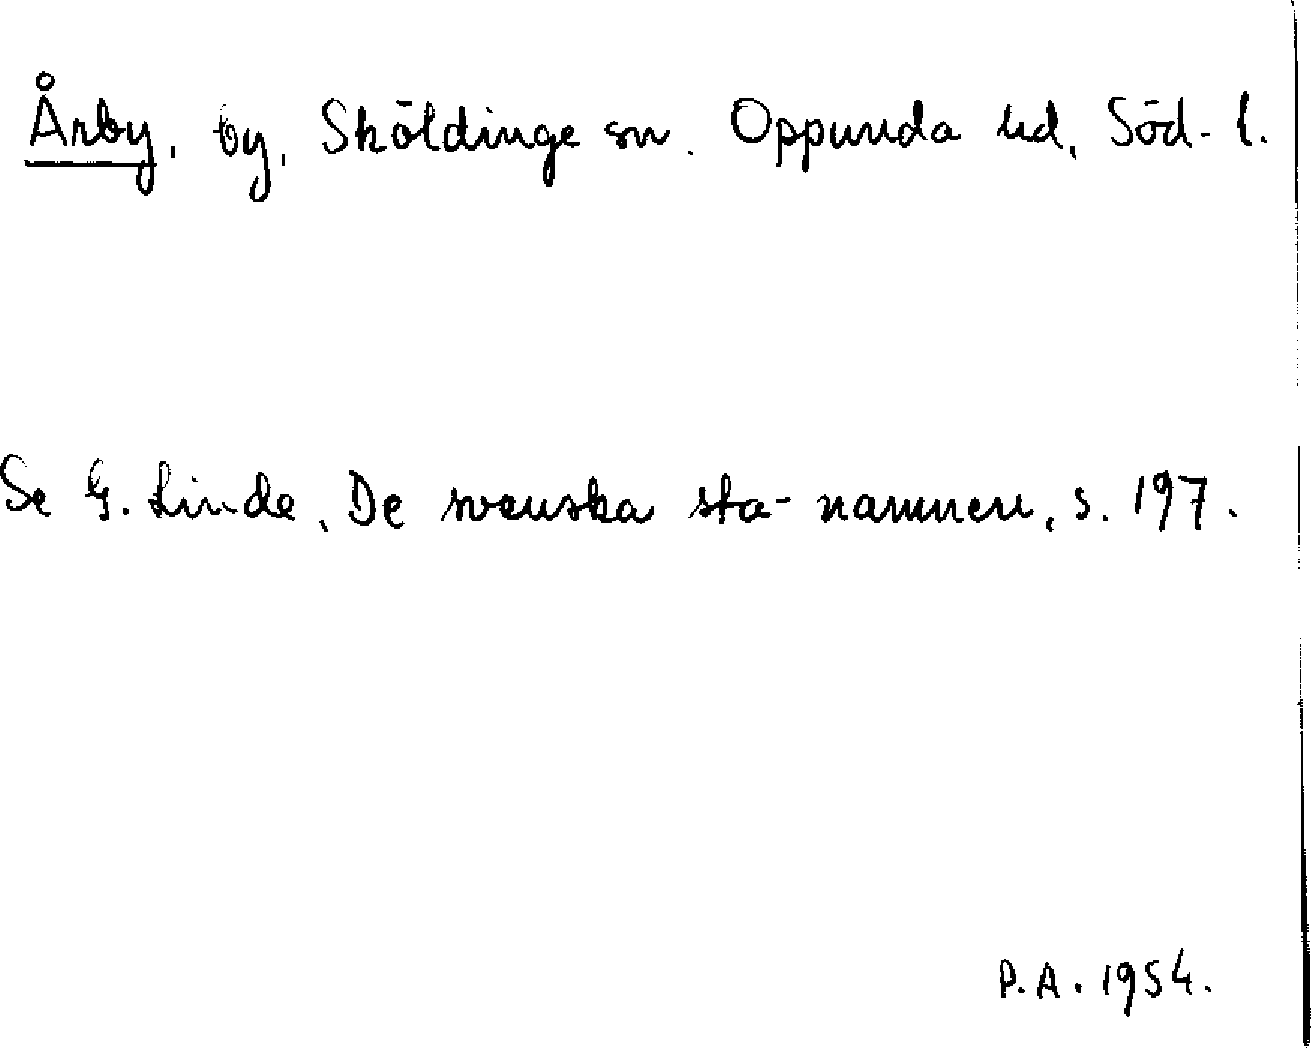 Årby, by, Sköldinge sn. Oppunda hd, Söd. l.
Se G. Linde, De svenska sta-namnen, s. 197.
P.A. 1954.